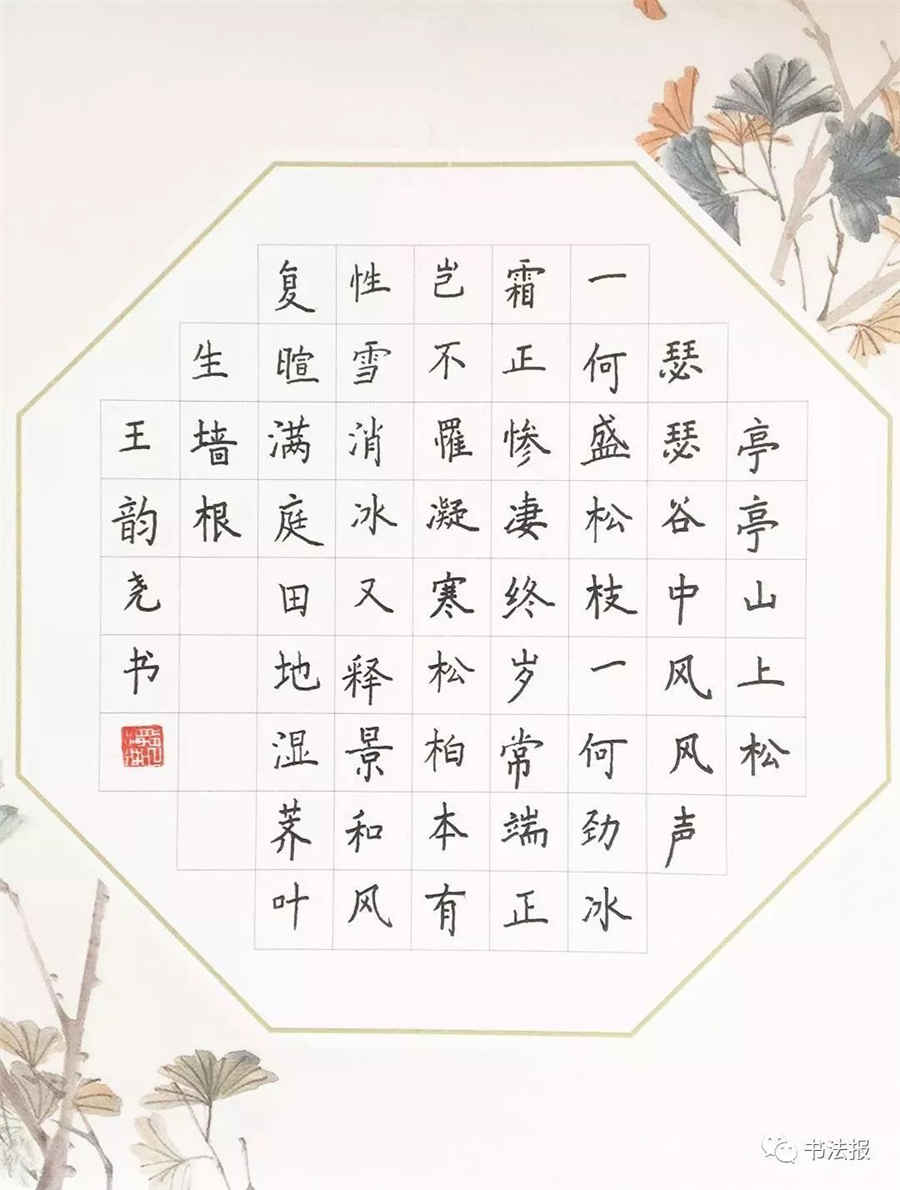 亭亭山上松
瑟瑟谷中风风声
一何盛松枝一何劲冰
霜正惨凄终岁常端正
岂不罹凝寒松柏本有
性雪消冰又释景和风
复暄满庭田地湿荠叶
生墙根
王韵尧书
书法报